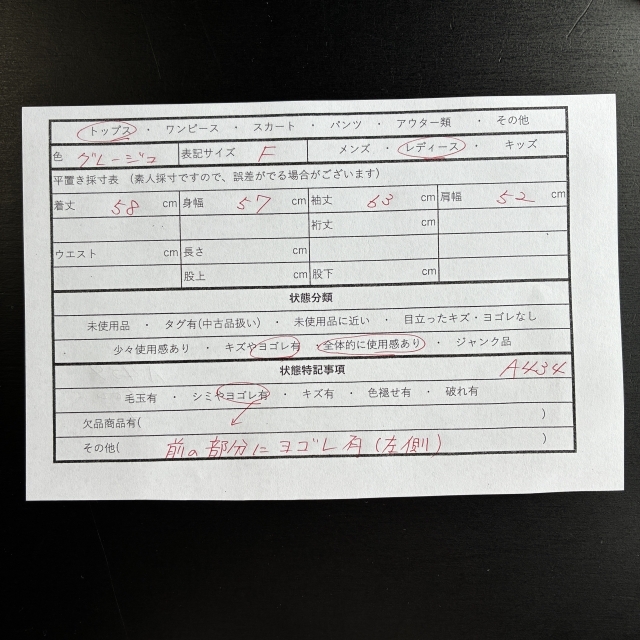 トップス ・ ワンピース ・ スカート ・ パンツ ・ アウター類 ・ その他
色 グレージュ 表記サイズ F メンズ ・ レディース ・ キッズ
平置き採寸表 (素人採寸ですので、誤差がでる場合がございます)
着丈 58 cm 身幅 57 cm 袖丈 63 cm 肩幅 52 cm
裄丈 cm
ウエスト cm 長さ cm
股上 cm 股下 cm
状態分類
未使用品 ・ タグ有(中古品扱い) ・ 未使用品に近い ・ 目立ったキズ・ヨゴレなし
少々使用感あり ・ キズやヨゴレ有 ・ 全体的に使用感あり ・ ジャンク品
状態特記事項 A434
毛玉有 ・ シミやヨゴレ有 ・ キズ有 ・ 色褪せ有 ・ 破れ有
欠品商品有( )
その他( 前の部分にヨゴレ有(左側) )